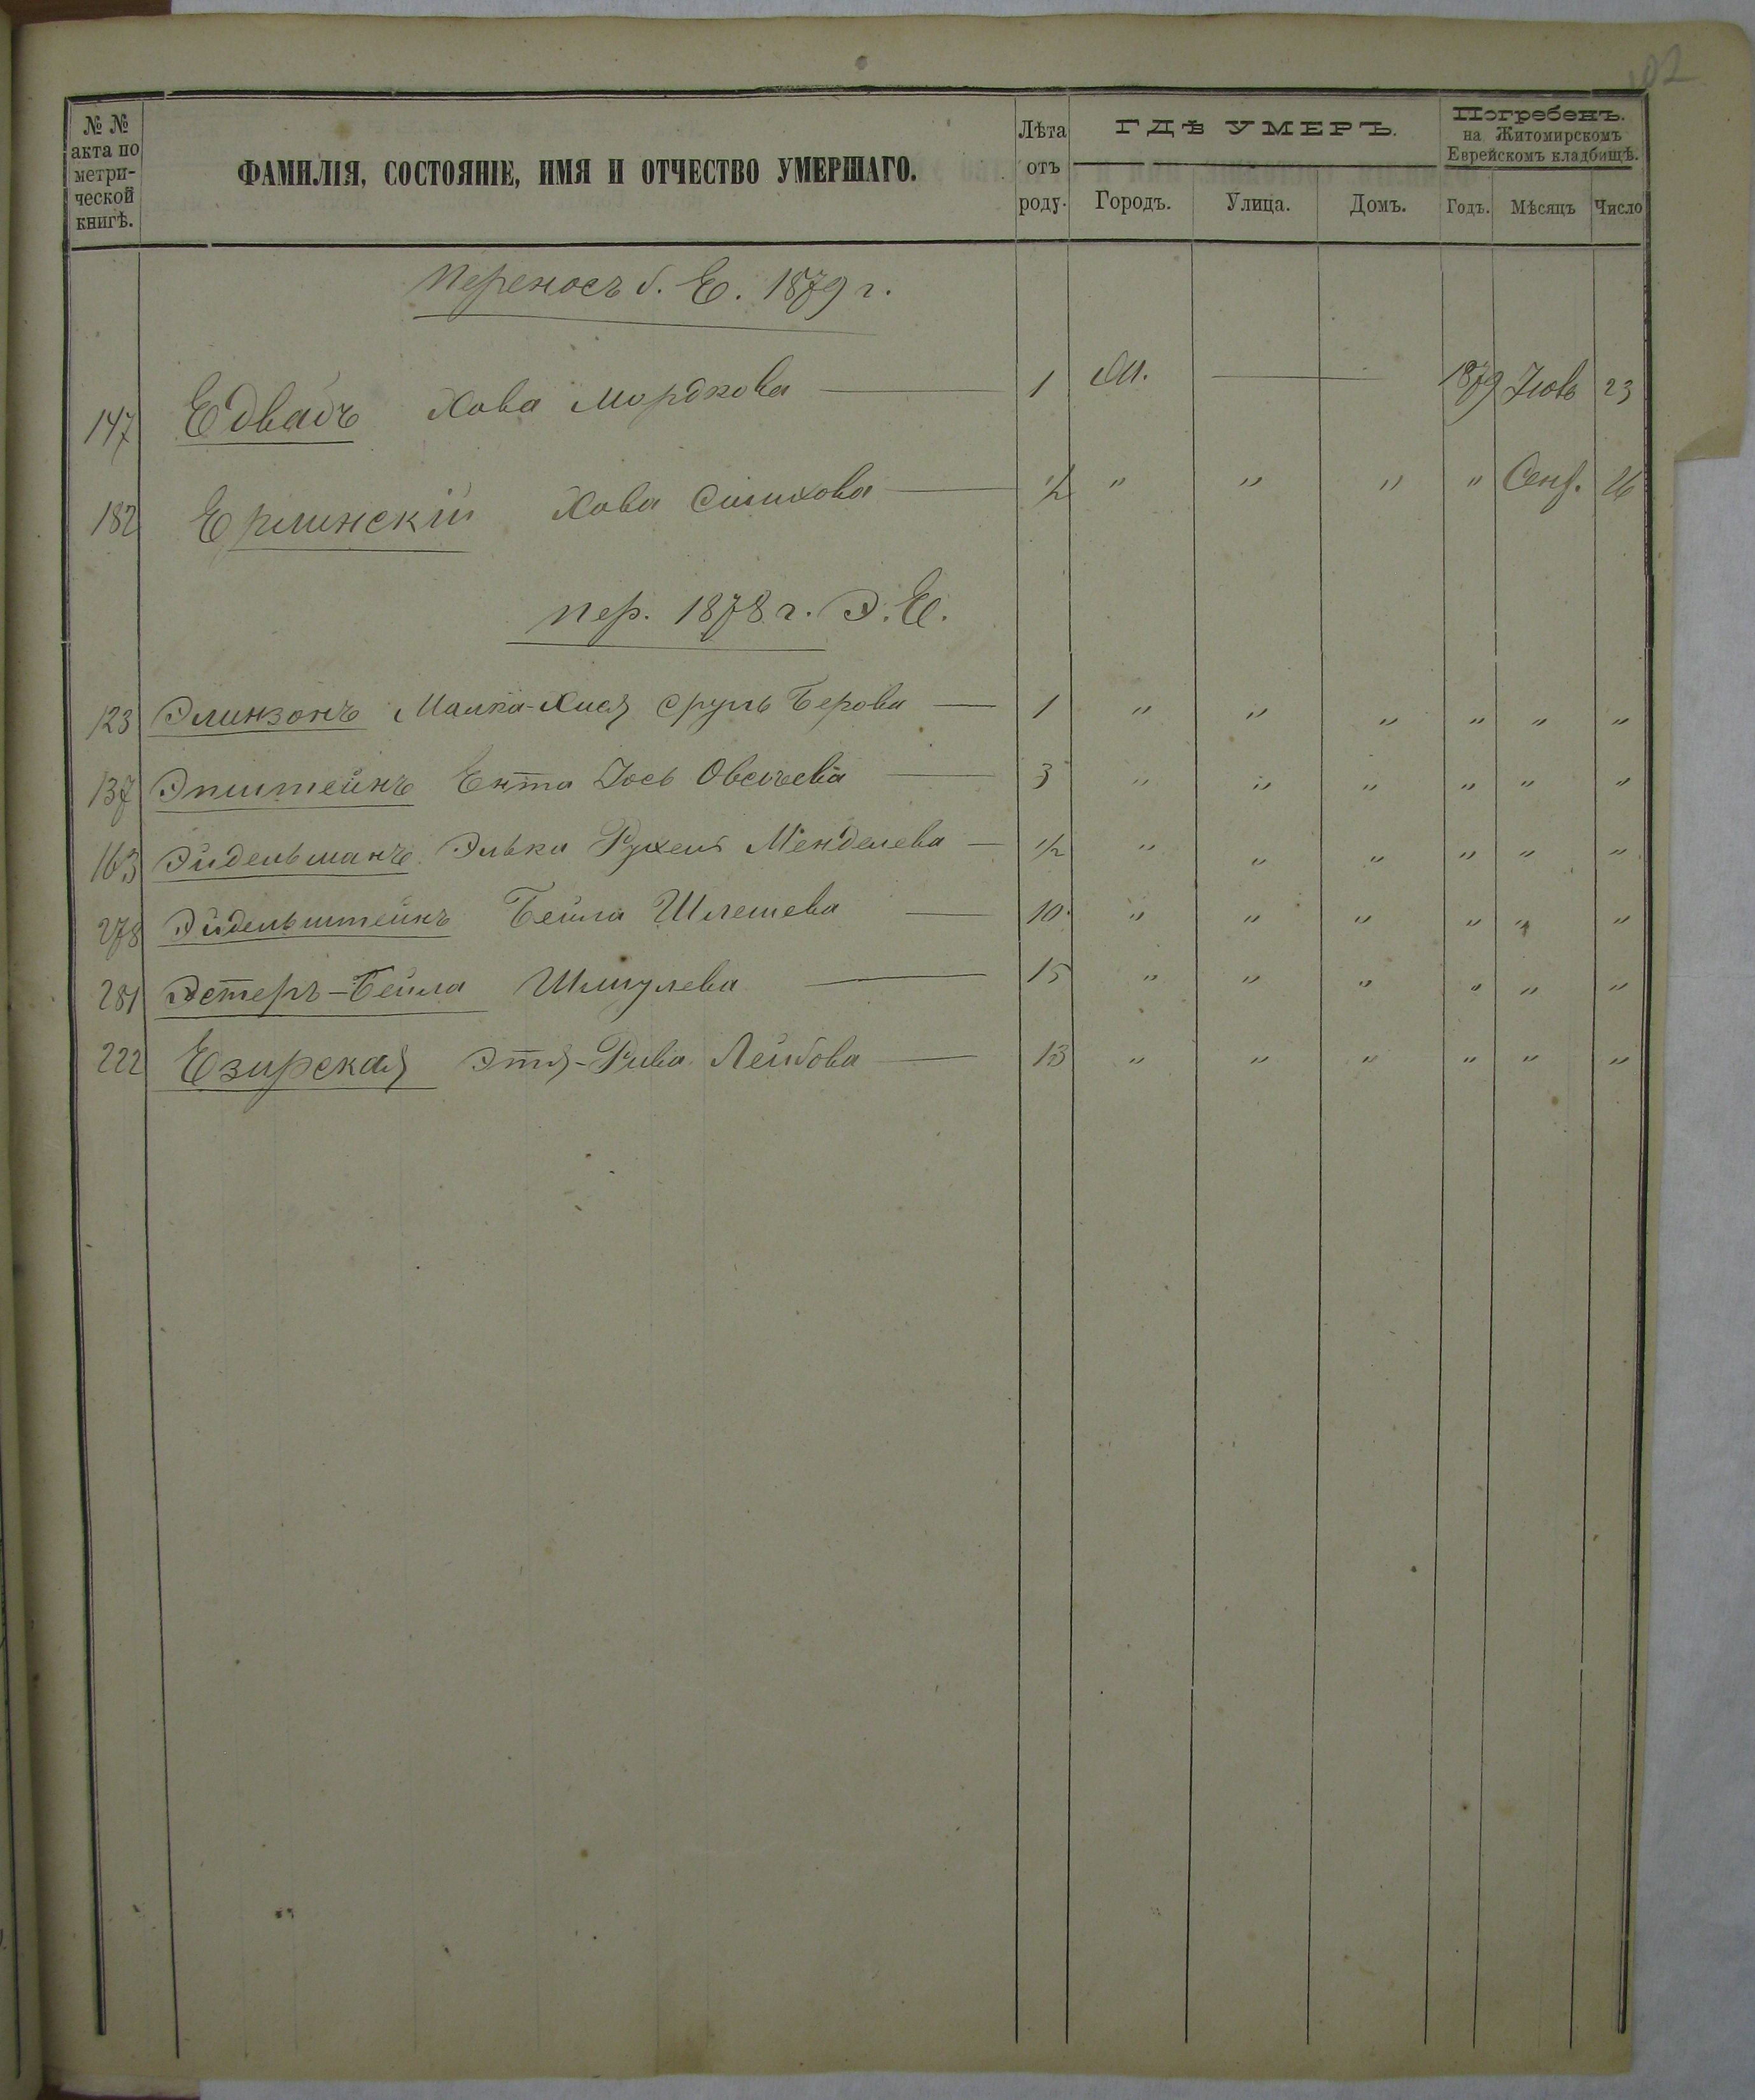 102
№ №
акта по
метри-
ческой
книгѣ.
ФАМИЛІЯ, СОСТОЯНІЕ, ИМЯ И ОТЧЕСТВО УМЕРШАГО.
Лѣта
отъ
роду.
ГДѢ УМЕРЪ.
Городъ. Улица. Домъ.
Погребенъ.
на Житомирскомъ
Еврейскомъ кладбищѣ.
Годъ. Мѣсяцъ Число
Переносъ б. Е. 1879 г.
147 Хова Мордкова — 1 — 1879 23
182 Ерлинскій Хова — 1/2 " " " " Сент. 26
пер. 1878 г. Э. Е.
123 Элинзонъ Малка-Хися Сруль Берова — 1 " " " " " "
137 Эпштейнъ Ента Іось Овсеева — 3 " " " " " "
163 Эйдельманъ Элька Рухель Менделева — 1/2 " " " " " "
278 Эйдельштейнъ Бейла — 10 " " " " " "
281 Эстеръ-Бейла Шмулева — 15 " " " " " "
222 Езирская Этя-Рива Лейбова — 13 " " " " " "